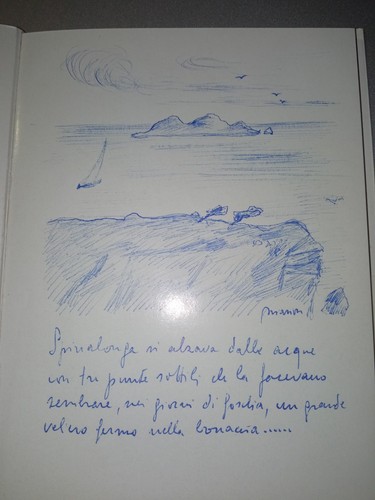 Spinalonga si alzava dalle acque
con tre punte sottili che la facevano
sembrare, nei giorni di foschia, un grande
veliero fermo nella bonaccia......